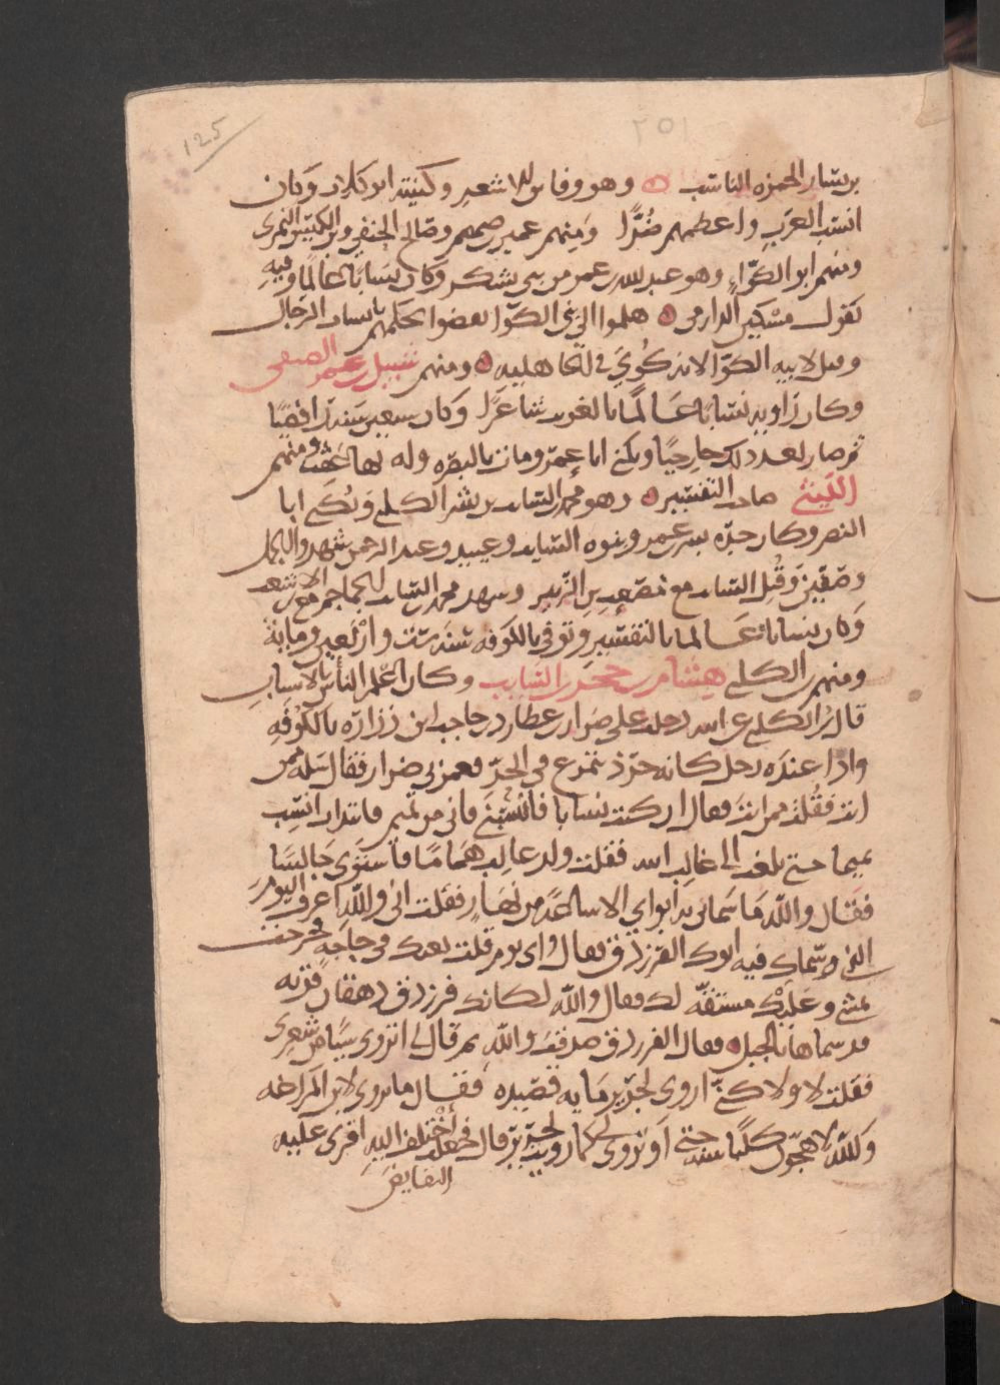 125
٢٥١
بن لسان الحمرة الناسب وهو وفا بن للاشعر وكنيته ابو كلاب وكان
انسب العرب واعظمهم ضرا ومنهم عمير بن ضمضم وصالح الحنفي وابن الكيس النمرى
ومنهم ابو الكوّاء وهو عبد الله بن عمر من بني يشكر وكان نسابا عالما وفيه
يقول مسكين الدارمى هلموا الى بنى الكوّا يقضوا بحكمهم بانساب الرجال
وقيل لابيه الكوّا لانه كُوِيَ في الجاهليه ومنهم شبيل بن عمر الضبعى
وكان راويه نسابا عالما بالغريب شاعرا وكان سبعين سنة رافضيا
ثم صار بعد ذلك خارجيا ويكنى ابا عمر ومات بالبصره وله بها عقب ومنهم
الكلبى صاحب التفسير وهو محمد بن السايب بن بشر الكلبى ويكنى ابا
النصر وكان جدّه بشر بن عمر وبنوه السايب وعبيد وعبد الرحمن شهدوا الجمل
وصفّين وقُتل السايب مع مصعب بن الزبير وشهد محمد بن السايب الجماجم مع ابن الاشعث
وكان نسابا عالما بالتفسير وتوفي بالكوفه سنة ست واربعين ومايه
ومنهم ابن الكلبى هشام بن محمد بن السايب وكان اعلم الناس بالانساب
قال ابن الكلبى عن ابيه دخلت على ضرار بن عطارد بن حاجب ابن زرارة بالكوفه
واذا عنده رجل كانه جرذ يتمرغ في الخزّ فغمزنى ضرار فقال سله ممن
انت فقلت ممن انت فقال ان كنت نسابا فانسبني فاني من تميم فابتدات انسب
تميما حتى بلغت الى غالب ابيه فقلت وولد غالب هماما فاستوى جالسا
فقال والله ما سماني به ابواي الا ساعة من نهار فقلت اني والله اعرف اليوم
الذي سماك فيه ابوك الفرزدق فقال واي يوم قلت بعثك في حاجه فخرجت
تمشي وعليك مستقه لك فقال والله لكانك فرزدق دهقان قريه
قد سماها بالجبل فقال الفرزدق صدقت والله ثم قال لى اتروى شيا من شعرى
فقلت لا ولاكنّي اروى لجرير مايه قصيده فقال ما تروى لابن المراغه
والله لاهجونّ كلبا سنة حتى او تروى لى كما رويت لجرير قال فجعلت اختلف اليه اقرى عليه
النقايض